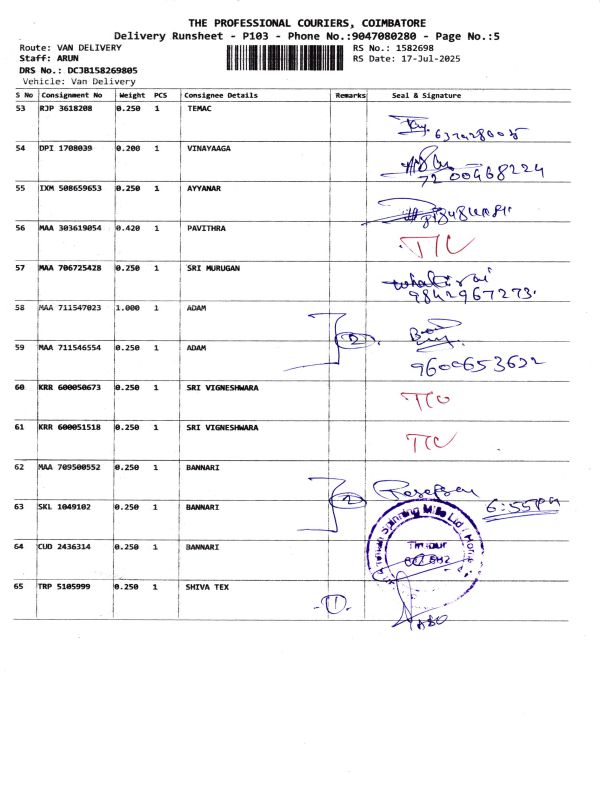 THE PROFESSIONAL COURIERS, COIMBATORE
Delivery Runsheet - P103 - Phone No.:9047080280 - Page No.:5
Route: VAN DELIVERY RS No.: 1582698
Staff: ARUN RS Date: 17-Jul-2025
DRS No.: DCJB158269805
Vehicle: Van Delivery
S No Consignment No Weight PCS Consignee Details Remarks Seal & Signature
53 RJP 3618208 0.250 1 TEMAC
54 DPI 1708039 0.200 1 VINAYAAGA
7200468224
55 IXM 508659653 0.250 1 AYYANAR
56 MAA 303619054 0.420 1 PAVITHRA
57 MAA 706725428 0.250 1 SRI MURUGAN
9842967273.
58 MAA 711547023 1.000 1 ADAM
59 MAA 711546554 0.250 1 ADAM
9600653622
60 KRR 600050673 0.250 1 SRI VIGNESHWARA
61 KRR 600051518 0.250 1 SRI VIGNESHWARA
62 MAA 709500552 0.250 1 BANNARI
63 SKL 1049102 0.250 1 BANNARI 2 6:55PM
64 CUD 2436314 0.250 1 BANNARI
Spinning Mills Ltd
Tirupur
65 TRP 5105999 0.250 1 SHIVA TEX